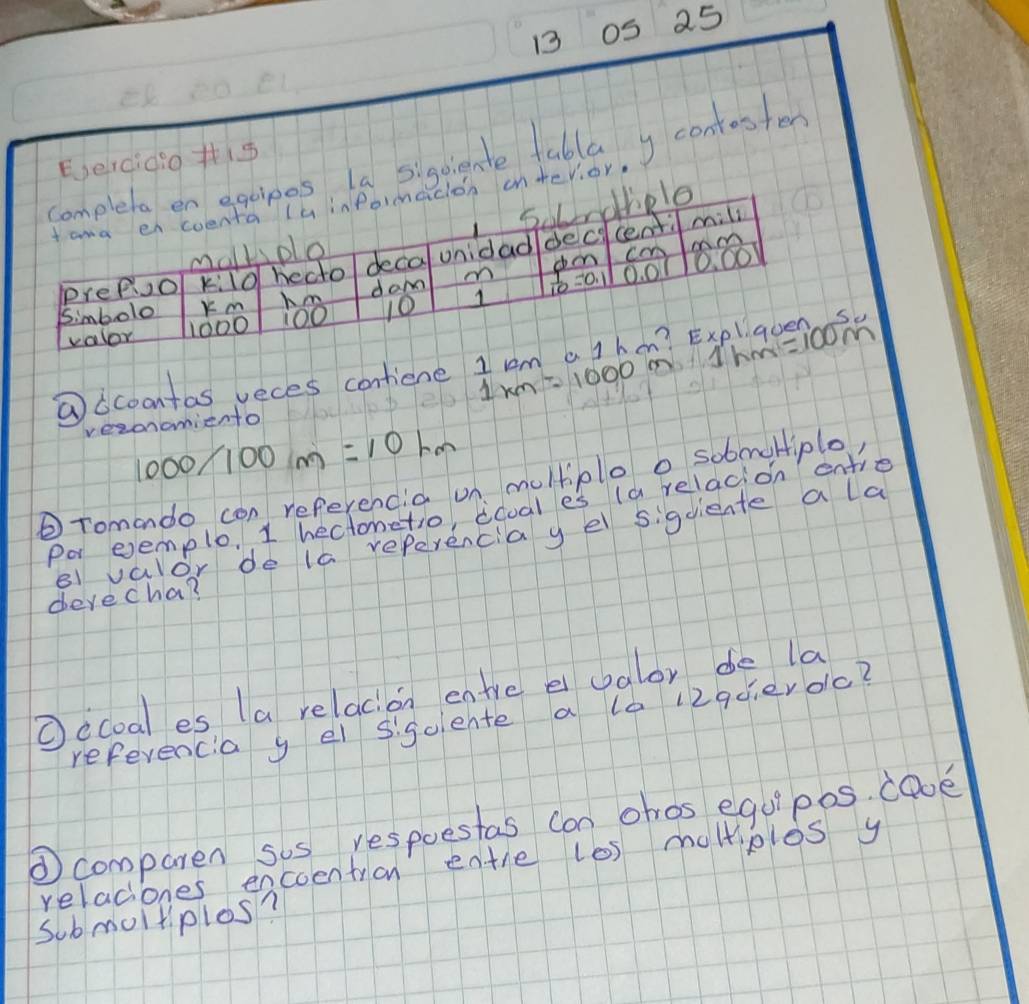 13 05 25
Ejercicio #15
completa en equipos la siguiente tabla y contesten
toma en cuenta la información anterior.
multiplo Submultiplo
prefijo kilo hecto deca unidad deci centi mili
simbolo km hm dam m dm cm mm
valor 1000 100 10 1 1/10=0.1 0.01 0.001
a) ¿cuantas veces contiene 1 km a 1 hm? Expliquen su
rezonamiento 1km=1000 m 1hm=100m
1000/100 m = 10 hm
b) Tomando con referencia un multiplo o submultiplo,
por ejemplo. 1 hectometro, ¿cual es la relación entre
el valor de la referencia y el siguiente a la
derecha?
c) ¿cual es la relación entre el valor de la
referencia y el siguiente a la izquierda?
d) comparen sus respuestas con otros equipos. ¿Qué
relaciones encuentran entre los multiplos y
submultiplos?